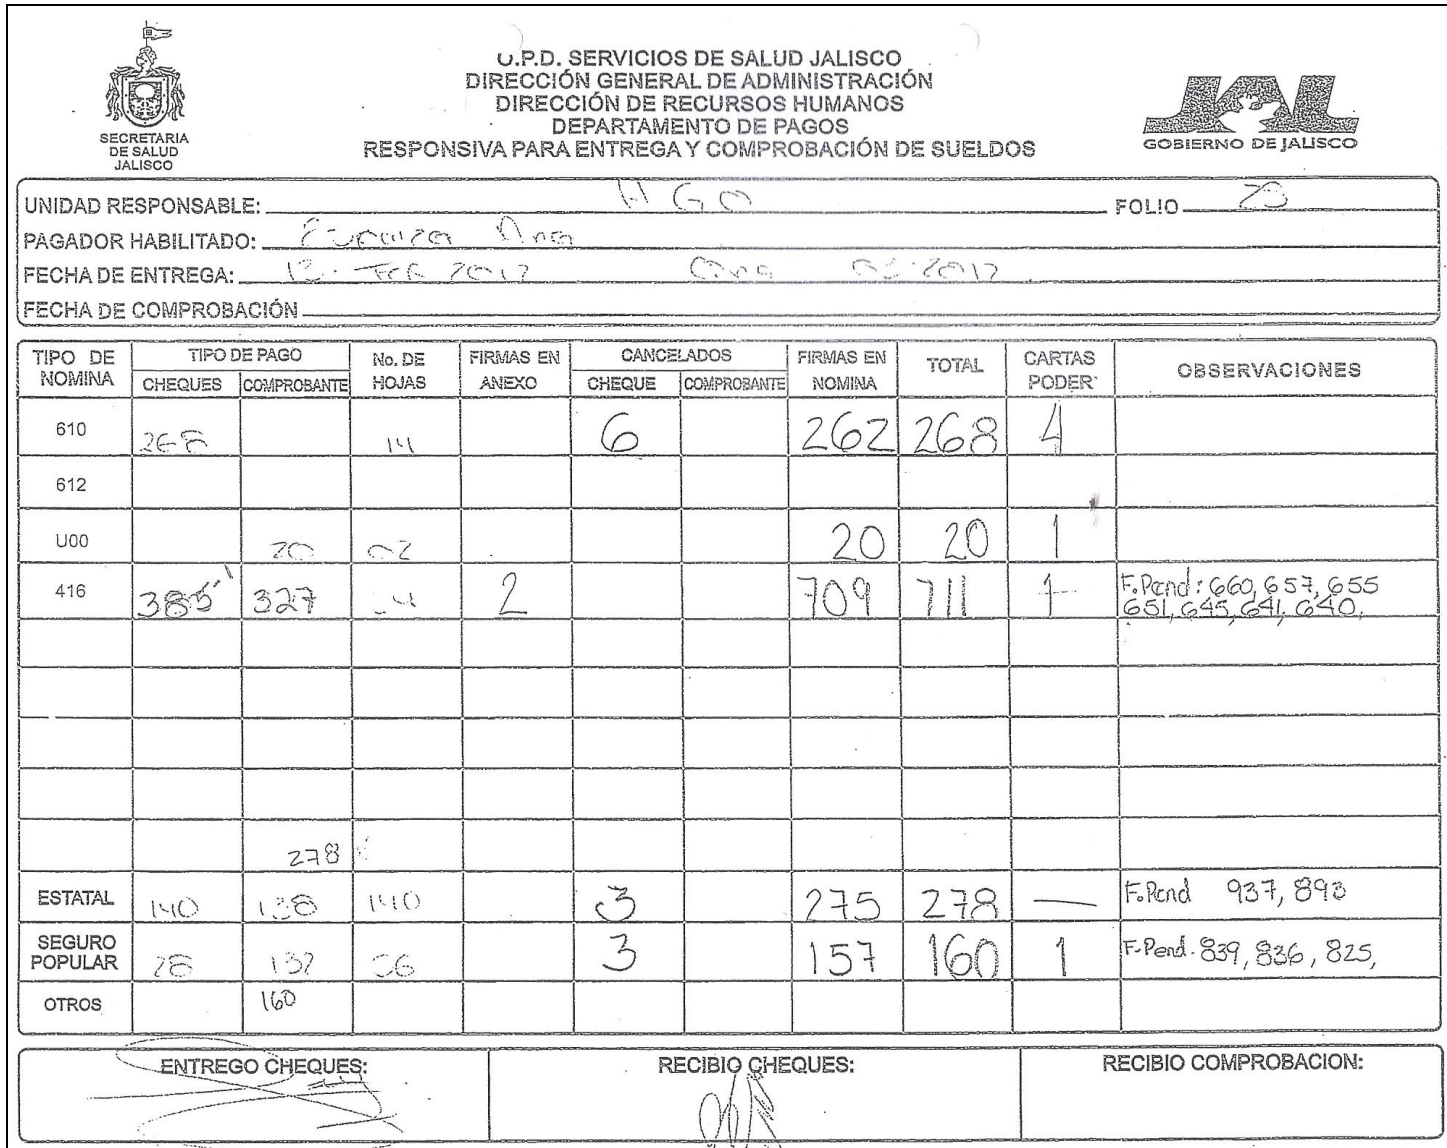 SECRETARIA
DE SALUD
JALISCO
O.P.D. SERVICIOS DE SALUD JALISCO
DIRECCIÓN GENERAL DE ADMINISTRACIÓN
DIRECCIÓN DE RECURSOS HUMANOS
DEPARTAMENTO DE PAGOS
RESPONSIVA PARA ENTREGA Y COMPROBACIÓN DE SUELDOS
JAL
GOBIERNO DE JALISCO
UNIDAD RESPONSABLE: HGO FOLIO
PAGADOR HABILITADO: Ana
FECHA DE ENTREGA: Feb 2017 Qna 03-2017
FECHA DE COMPROBACIÓN
TIPO DE NOMINA TIPO DE PAGO No. DE HOJAS FIRMAS EN ANEXO CANCELADOS FIRMAS EN NOMINA TOTAL CARTAS PODER OBSERVACIONES
CHEQUES COMPROBANTE CHEQUE COMPROBANTE
610 268 14 6 262 268 4
612
U00 20 02 20 20 1
416 385 327 2 709 711 1 F.Pend: 660, 657, 655
651, 645, 641, 640,
278
ESTATAL 140 138 140 3 275 278 — F.Pend 937, 893
SEGURO POPULAR 28 132 3 157 160 1 F.Pend. 839, 836, 825,
OTROS 160
ENTREGO CHEQUES: RECIBIO CHEQUES: RECIBIO COMPROBACION: